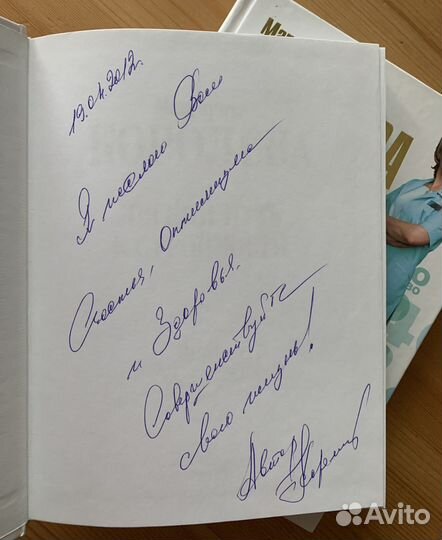 19.04.2012.
Я желаю Вам
Счастья, Оптимизма
и Здоровья.
Совершенствуйте
свою жизнь!
Автор
Avito